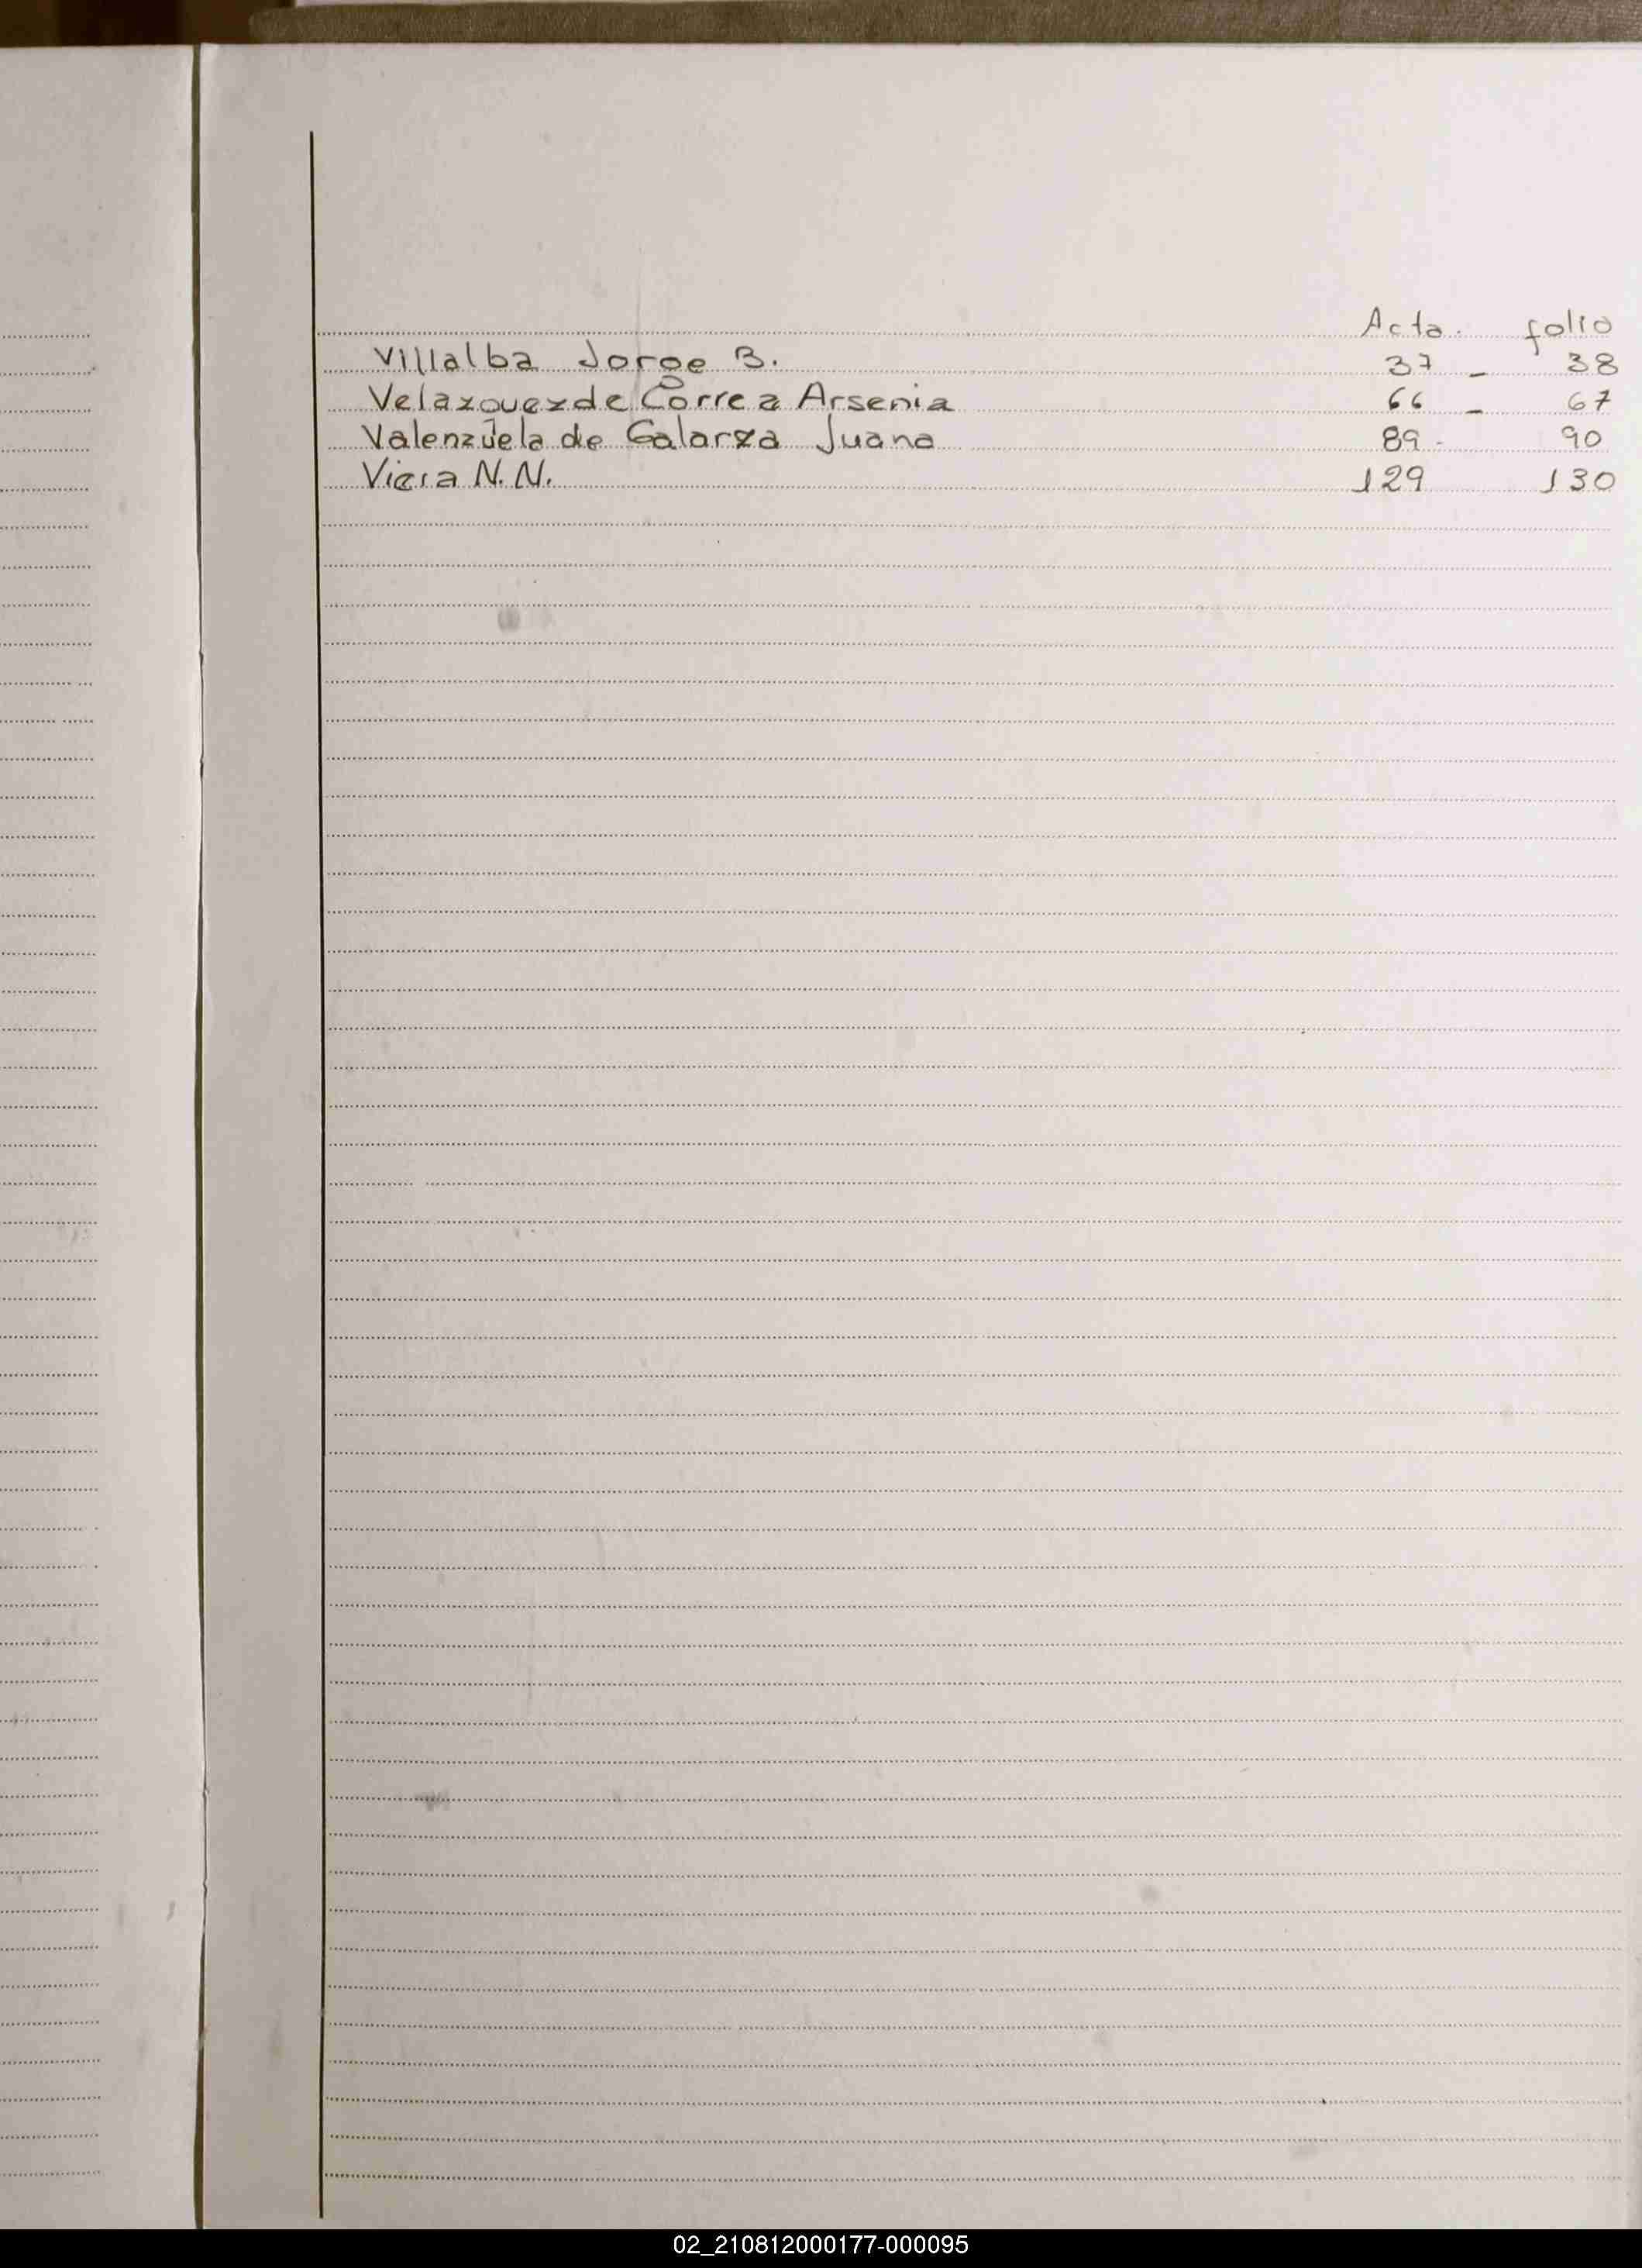 Acta. folio
Villalba Jorge B. 37 - 38
Velazquez de Correa Arsenia 66 - 67
Valenzuela de Galarza Juana 89 - 90
Viera N. N. 129 130
02_210812000177-000095